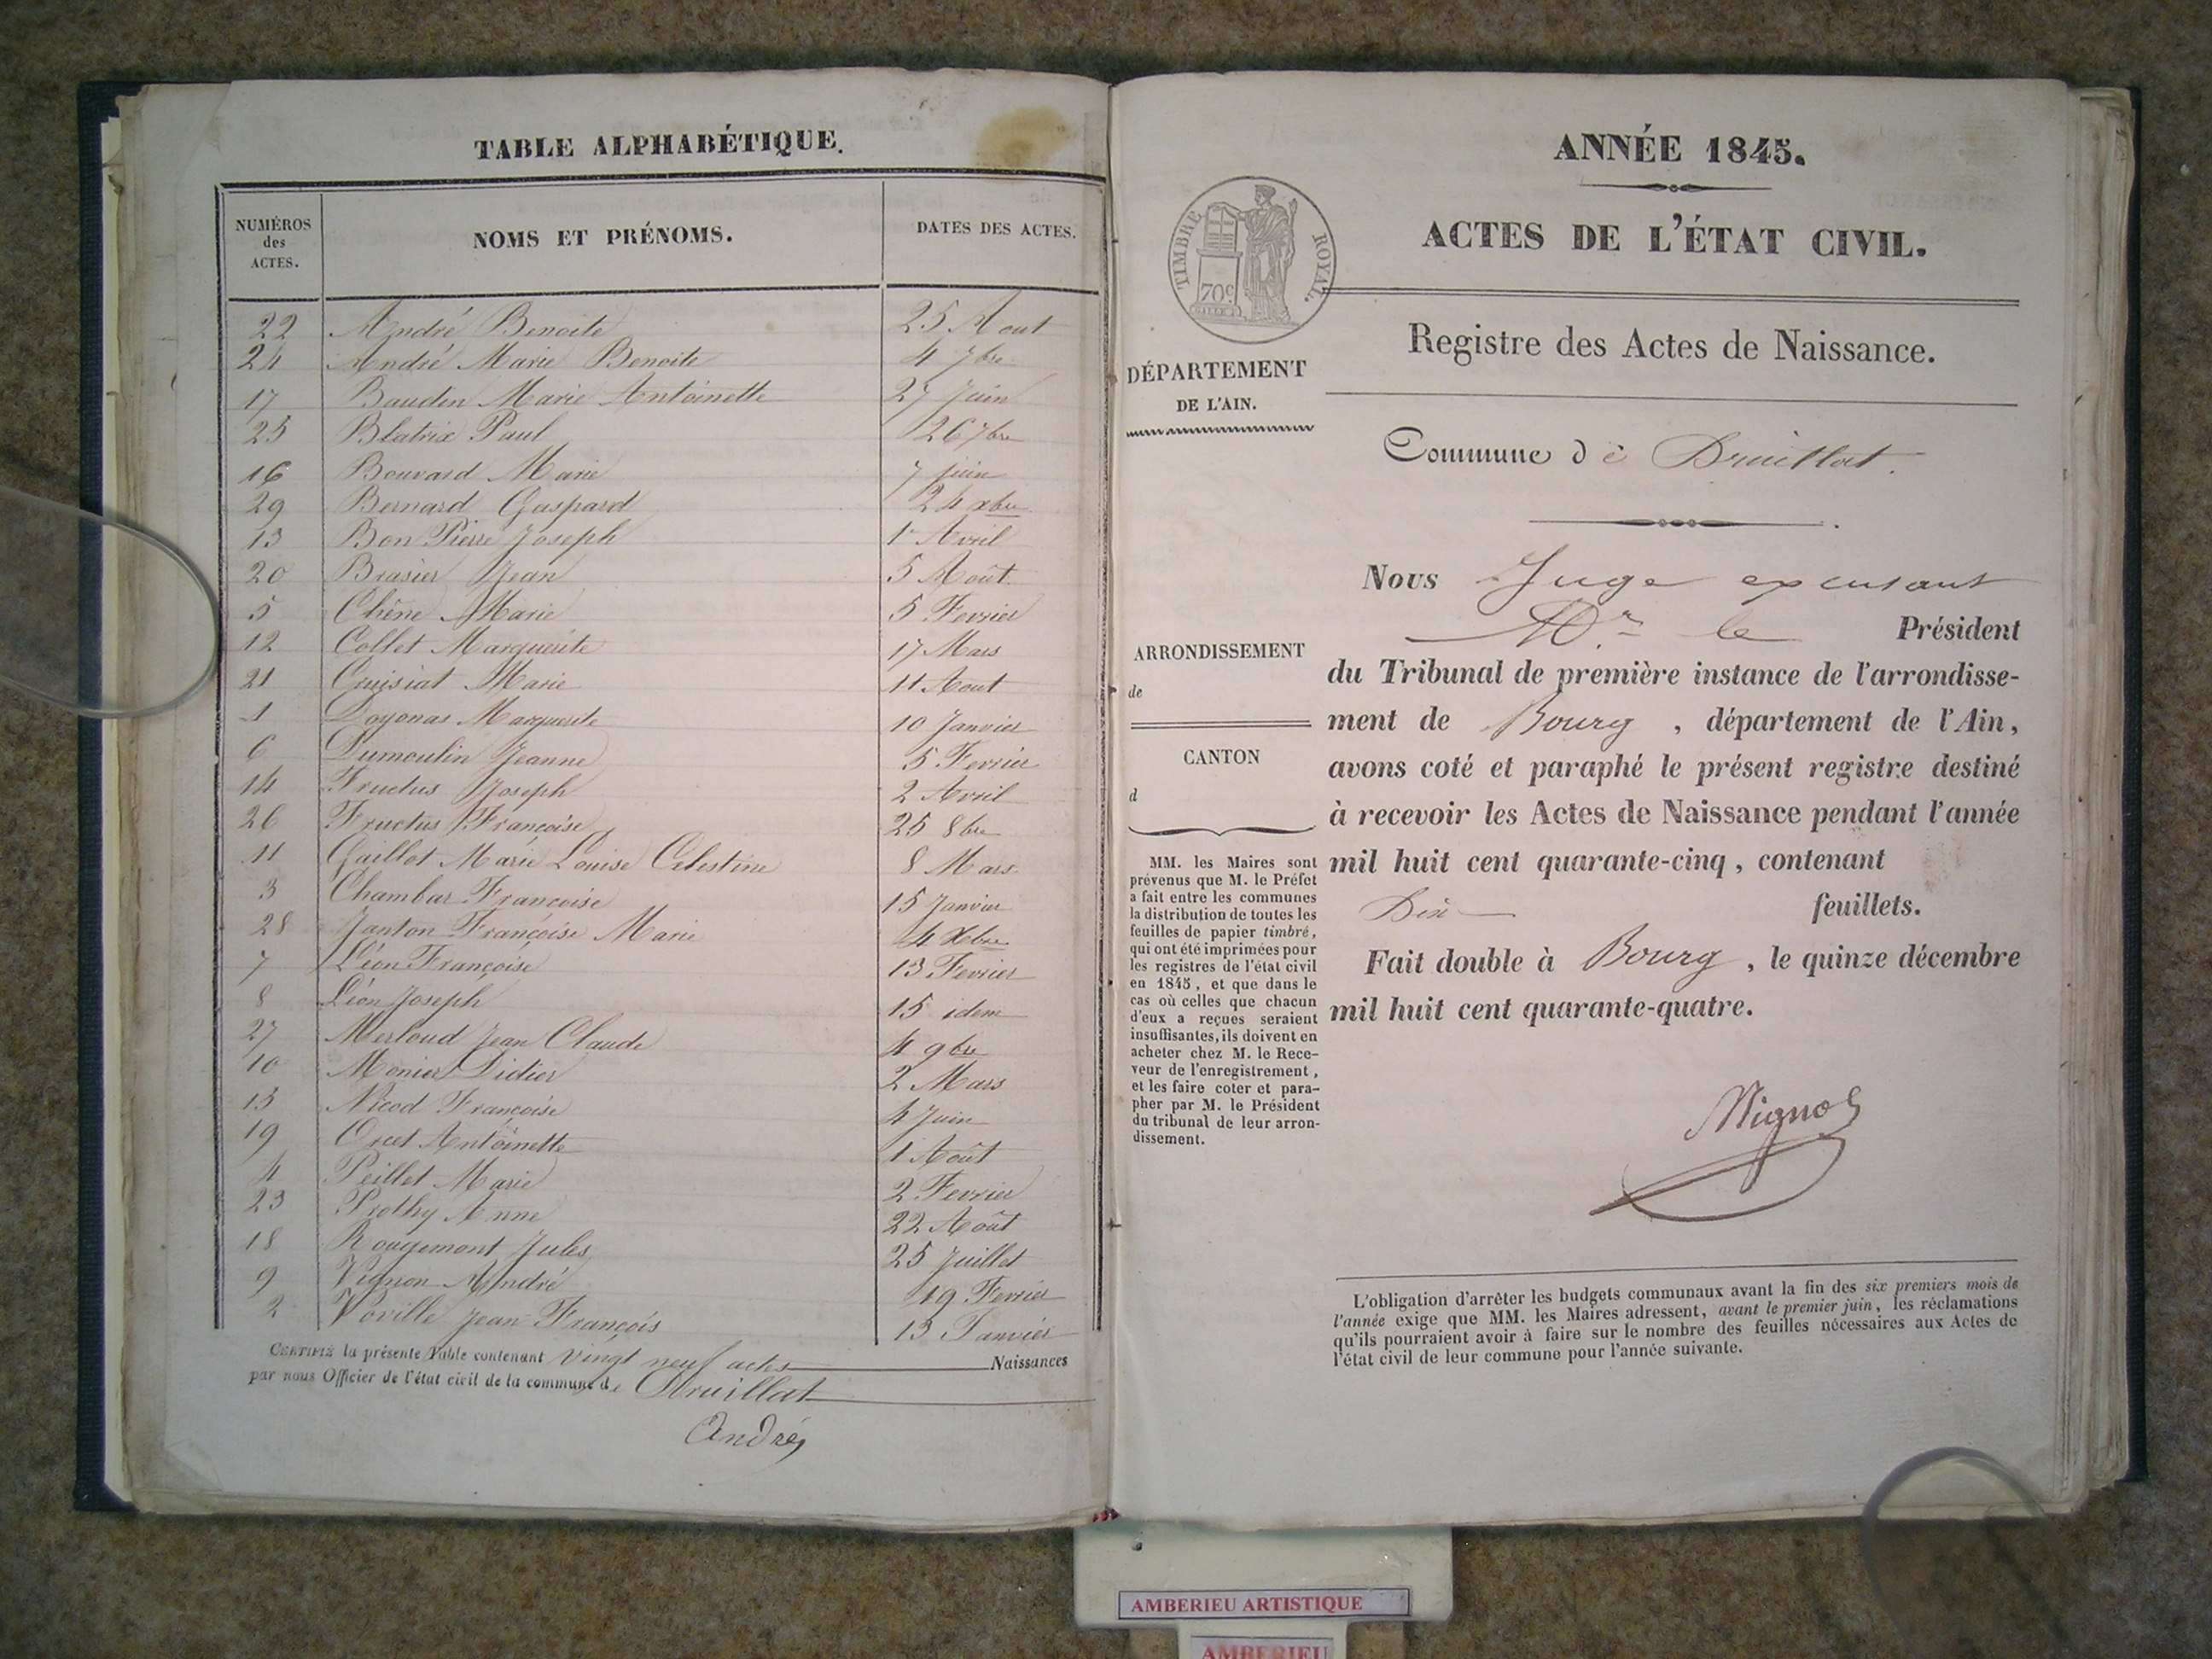 TABLE ALPHABÉTIQUE.
NUMÉROS des ACTES. NOMS ET PRÉNOMS. DATES DES ACTES.
22 André Benoite 25 Aout
24 André Marie Benoite 4 7bre
17 Baudin Marie Antoinette 27 Juin
25 Blatrix Paul 26 7bre
16 Bouvard Marie 7 juin
29 Bernard Gaspard 24 xbre
13 Bon Pierre Joseph 1r Avril
20 Brasier Jean 5 Août
5 Chêne Marie 5 Fevrier
12 Collet Marguerite 17 Mars
21 Cruisiat Marie 11 Aout
1 Doyonas Marguerite 10 Janvier
6 Dumoulin Jeanne 5 Fevrier
14 Fructus Joseph 2 Avril
26 Fructus Françoise 25 8bre
11 Gaillot Marie Louise Celestine 8 Mars
3 Chambar Françoise 15 Janvier
28 Janton Françoise Marie 4 Xbre
7 Léon Françoise 13 Fevrier
8 Léon Joseph 15 idem
27 Merloud Jean Claude 4 9bre
10 Monier Didier 2 Mars
15 Nicod Françoise 4 Juin
19 Orcet Antoinette 1 Août
4 Peillet Marie 2 Fevrier
23 Prothy Anne 22 Août
18 Rougemont Jules 25 Juillet
9 Vignon André 19 Fevrier
2 Voville Jean François 13 Janvier
CERTIFIÉ la présente Table contenant vingt neuf actes Naissances
par nous Officier de l'état civil de la commune de Druillat
André
ANNÉE 1845.
ACTES DE L'ÉTAT CIVIL.
TIMBRE ROYAL.
70c
Registre des Actes de Naissance.
DÉPARTEMENT
DE L'AIN.
Commune de Druillat.
Nous Juge excusant
Mr le Président
du Tribunal de première instance de l'arrondisse-
ment de Bourg , département de l'Ain,
avons coté et paraphé le présent registre destiné
à recevoir les Actes de Naissance pendant l'année
mil huit cent quarante-cinq, contenant
Dix feuillets.
Fait double à Bourg , le quinze décembre
mil huit cent quarante-quatre.
ARRONDISSEMENT
de
CANTON
d
MM. les Maires sont
prévenus que M. le Préfet
a fait entre les communes
la distribution de toutes les
feuilles de papier timbré,
qui ont été imprimées pour
les registres de l'état civil
en 1845, et que dans le
cas où celles que chacun
d'eux a reçues seraient
insuffisantes, ils doivent en
acheter chez M. le Rece-
veur de l'enregistrement,
et les faire coter et para-
pher par M. le Président
du tribunal de leur arron-
dissement.
L'obligation d'arrêter les budgets communaux avant la fin des six premiers mois de
l'année exige que MM. les Maires adressent, avant le premier juin, les réclamations
qu'ils pourraient avoir à faire sur le nombre des feuilles nécessaires aux Actes de
l'état civil de leur commune pour l'année suivante.
AMBERIEU ARTISTIQUE
AMBERIEU